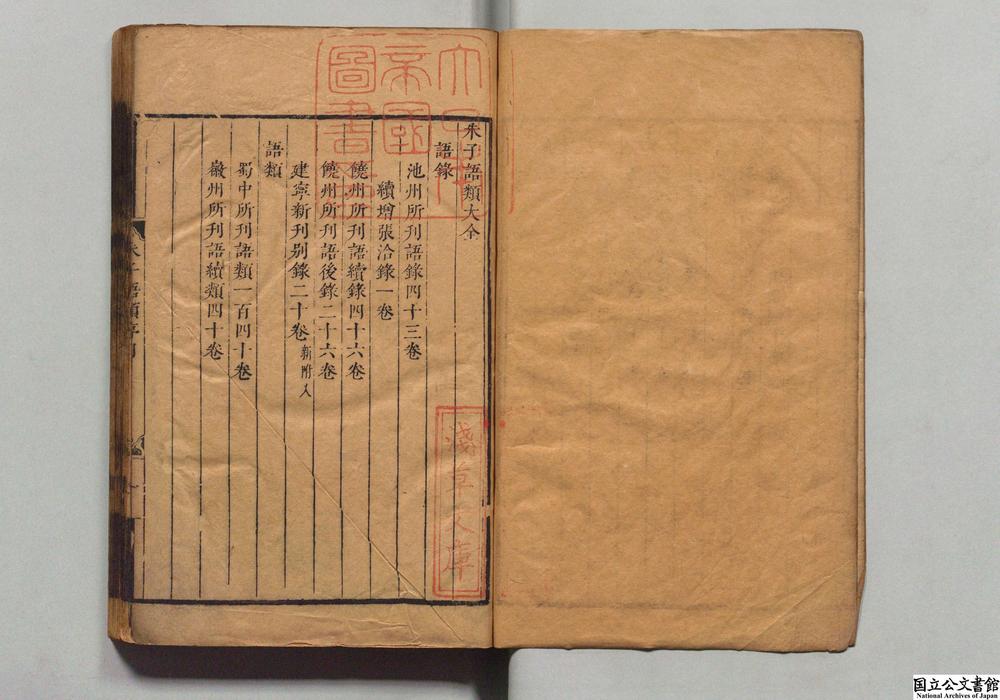 朱子語類大全
語錄
池州所刊語錄四十三卷
續增張洽錄一卷
饒州所刊語續錄四十六卷
饒州所刊語後錄二十六卷
建寧新刊別錄二十卷新附入
語類
蜀中所刊語類一百四十卷
徽州所刊語續類四十卷
大日本
帝國
圖書
淺草文庫
国立公文書館
National Archives of Japan